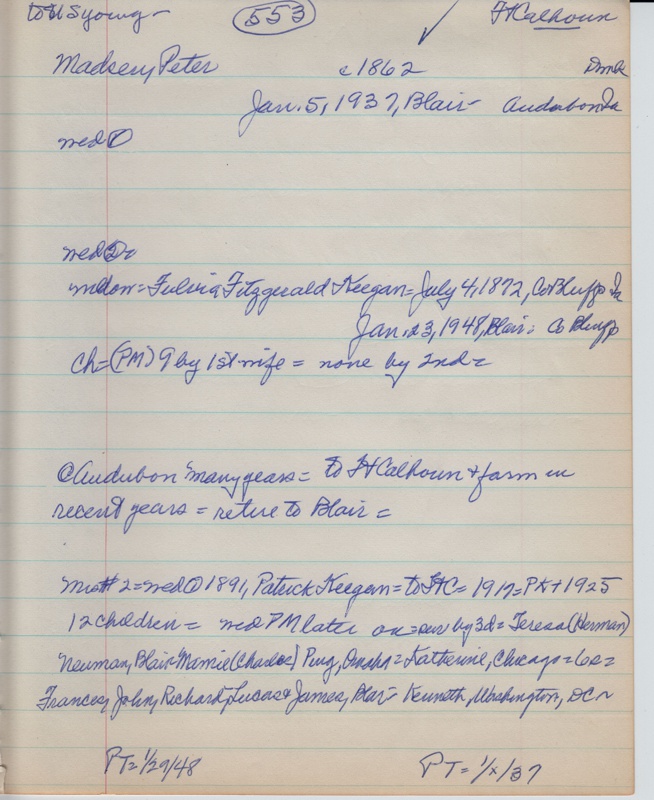 to US young - 553 Ft Calhoun
Madsen, Peter c1862 Dmk
Jan. 5, 1937, Blair - Audubon Ia
wed ①
wed ②=
widow = Fitzgerald Keegan = July 4, 1872, Co Bluffs Ia
Jan. 23, 1948, Blair = Co Bluffs
Ch = (PM) 9 by 1st wife = none by 2nd =
@ Audubon "many years = to Ft Calhoun + farm in
recent years = retire to Blair =
Mrs # 2 = wed ① 1891, Patrick Keegan = to FtC = 1917 = PK + 1925
12 children = wed PM later on = sur by 3d = Teresa (Herman)
Neuman, Blair = Mamie (Charles) Ping, Omaha = Katherine, Chicago = 6s =
Frances, John, Richard, Lucas & James, Blair - Kenneth, Washington, DC ~
PT = 1/29/48 PT = 1/x/37